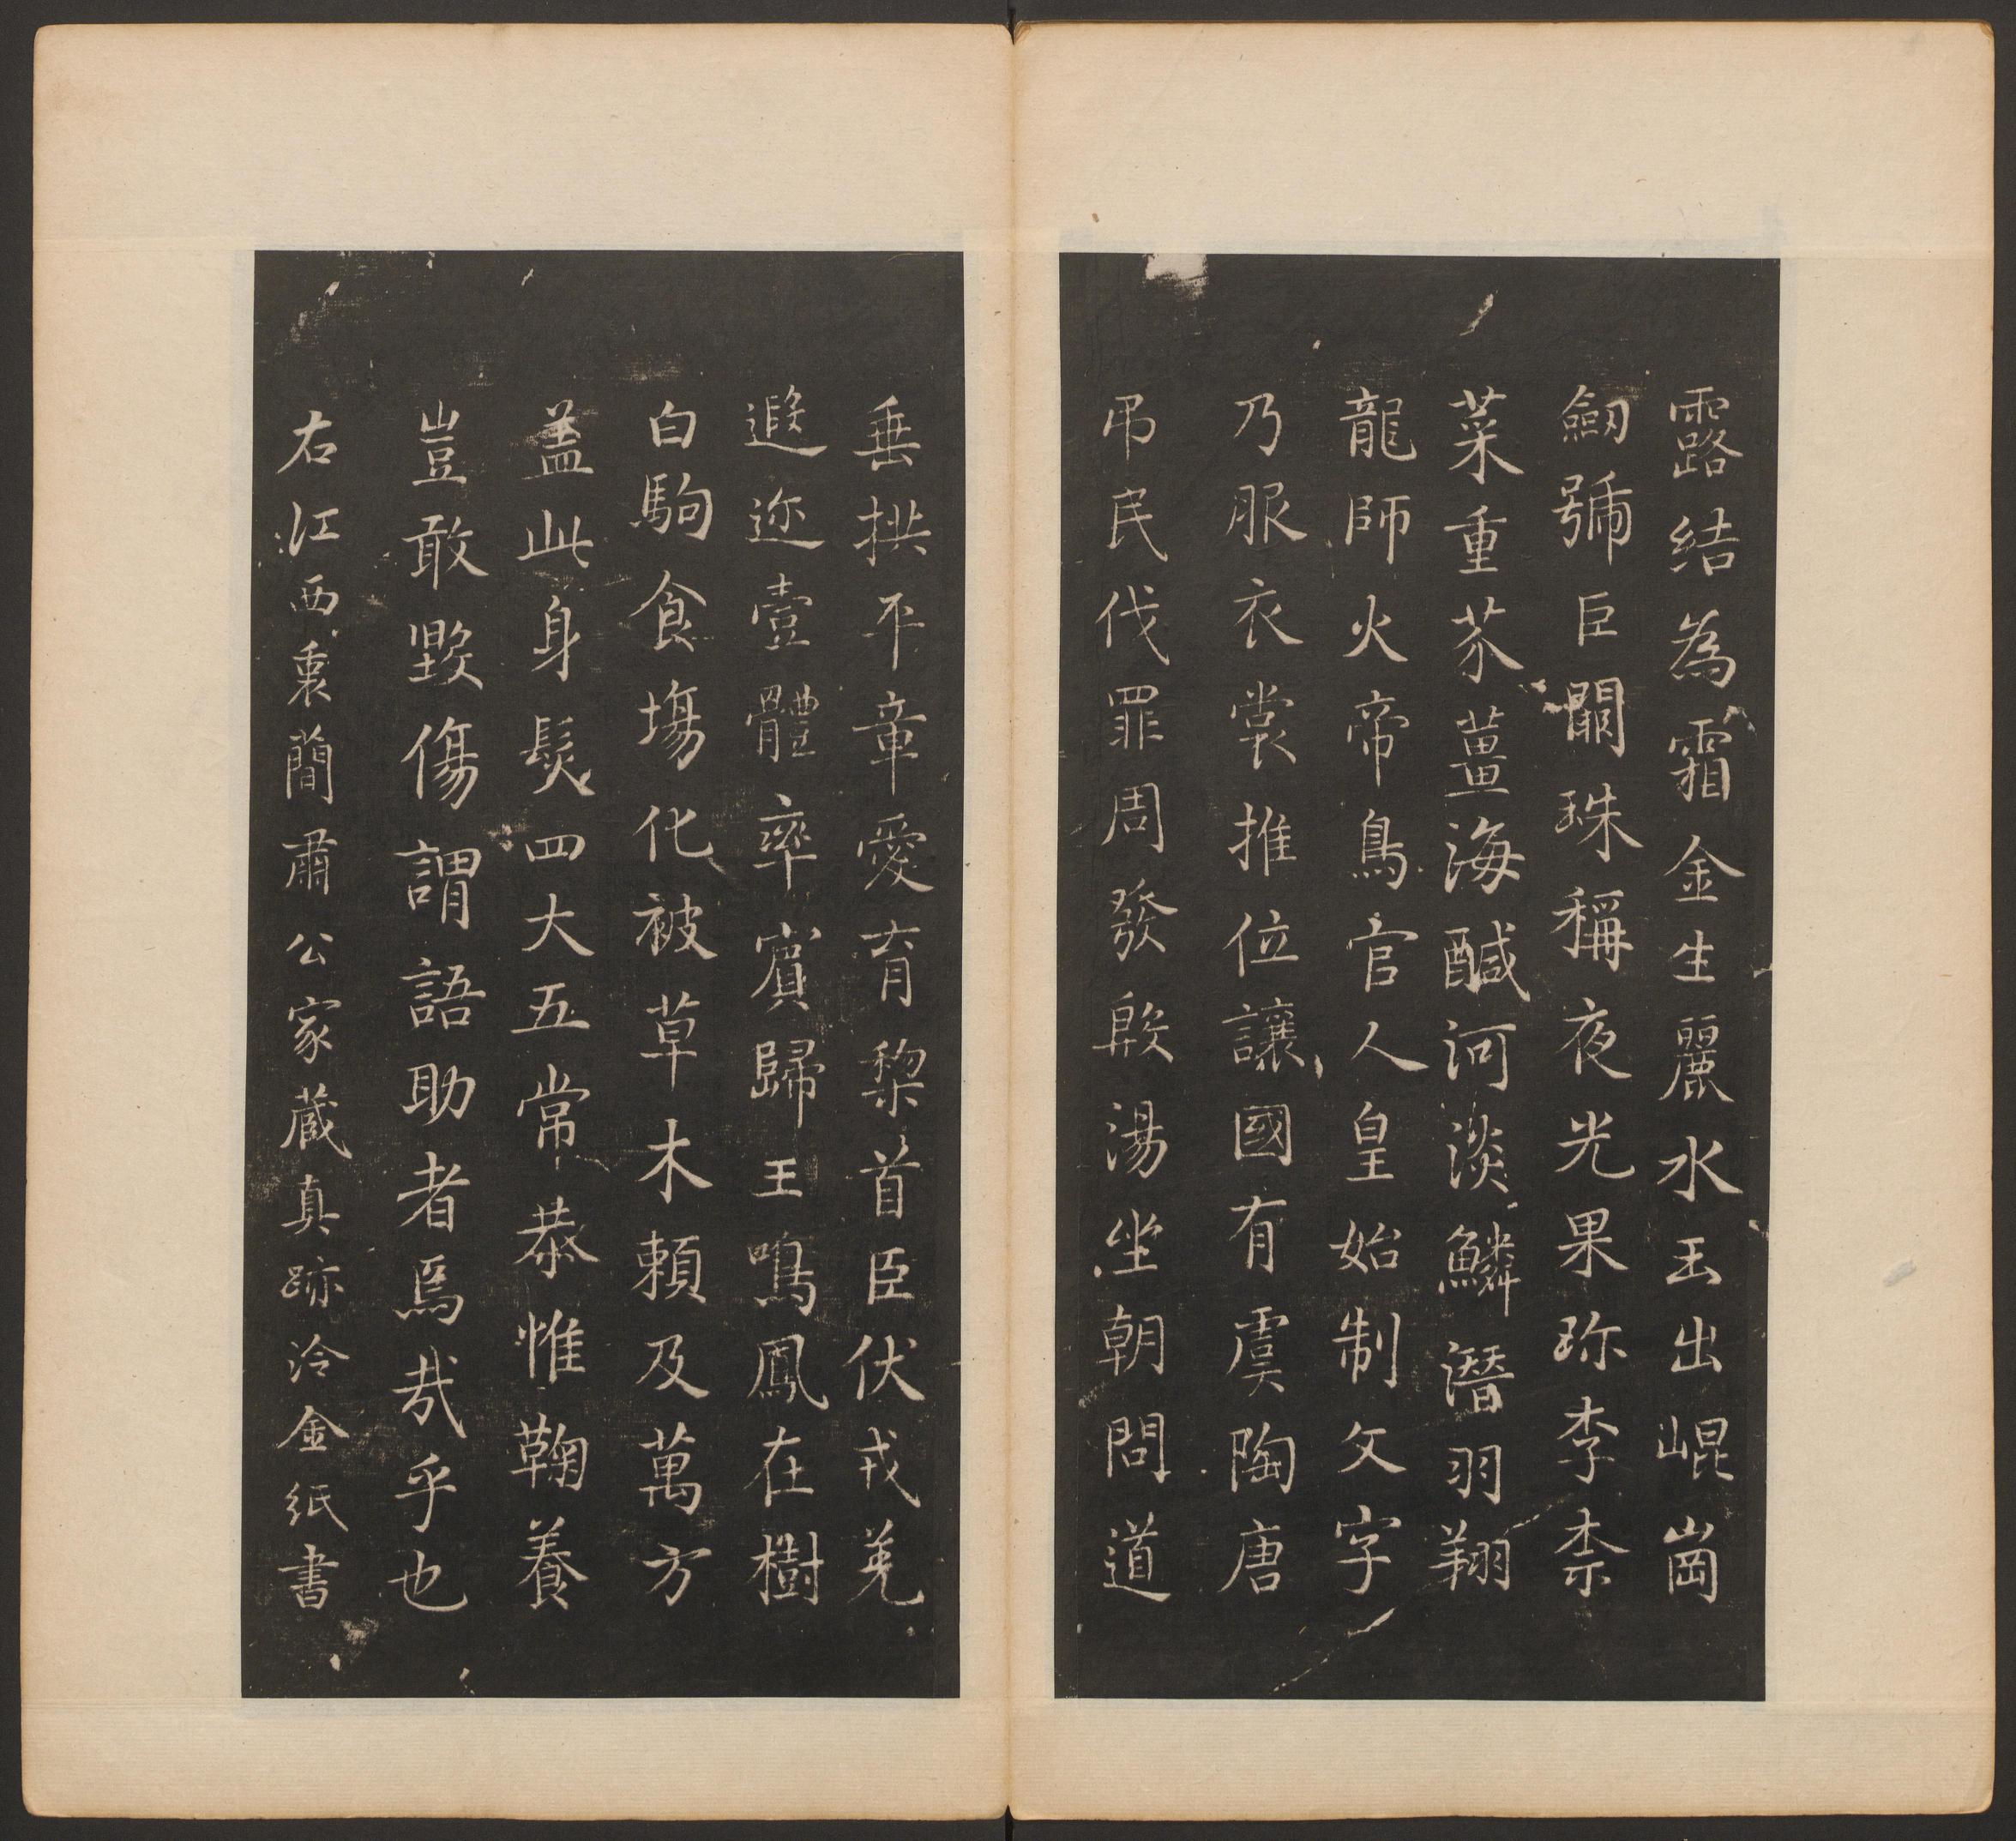 露結為霜金生麗水玉出崐崗
劒號巨闕珠稱夜光果珎李柰
菜重芥薑海醎河淡鱗潛羽翔
龍師火帝鳥官人皇始制文字
乃服衣裳推位讓國有虞陶唐
弔民伐罪周發殷湯坐朝問道
垂拱平章愛育黎首臣伏戎羌
遐迩壹體率賓歸王鳴鳳在樹
白駒食場化被草木賴及萬方
盖此身髮四大五常恭惟鞠養
豈敢毀傷謂語助者焉哉乎也
右江西裏蕳肅公家蔵真跡冷金紙書